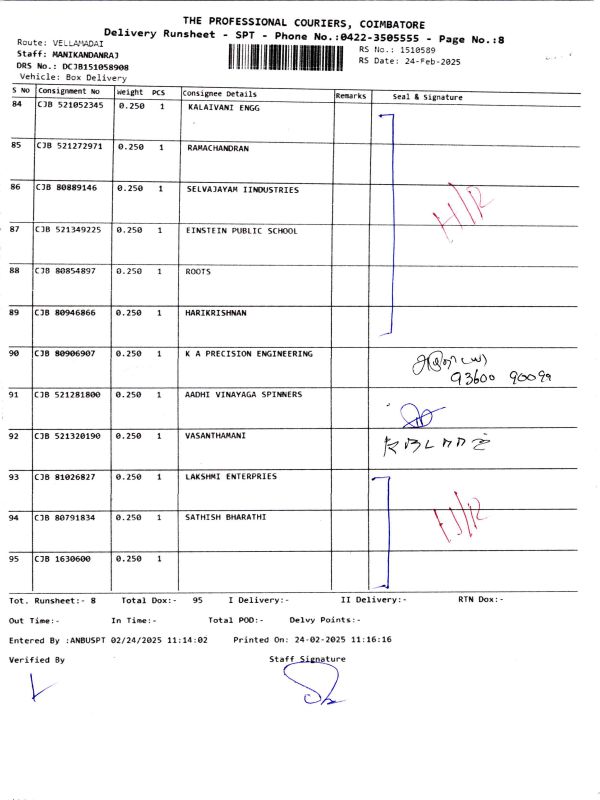 THE PROFESSIONAL COURIERS, COIMBATORE
Delivery Runsheet - SPT - Phone No.:0422-3505555 - Page No.:8
Route: VELLAMADAI
Staff: MANIKANDANRAJ
DRS No.: DCJB151058908
Vehicle: Box Delivery
RS No.: 1510589
RS Date: 24-Feb-2025
S No Consignment No Weight PCS Consignee Details Remarks Seal & Signature
84 CJB 521052345 0.250 1 KALAIVANI ENGG
85 CJB 521272971 0.250 1 RAMACHANDRAN
86 CJB 80889146 0.250 1 SELVAJAYAM IINDUSTRIES
H/R
87 CJB 521349225 0.250 1 EINSTEIN PUBLIC SCHOOL
88 CJB 80854897 0.250 1 ROOTS
89 CJB 80946866 0.250 1 HARIKRISHNAN
90 CJB 80906907 0.250 1 K A PRECISION ENGINEERING
93600 90099
91 CJB 521281800 0.250 1 AADHI VINAYAGA SPINNERS
92 CJB 521320190 0.250 1 VASANTHAMANI
93 CJB 81026827 0.250 1 LAKSHMI ENTERPRIES
94 CJB 80791834 0.250 1 SATHISH BHARATHI
H/R
95 CJB 1630600 0.250 1
Tot. Runsheet:- 8 Total Dox:- 95 I Delivery:- II Delivery:- RTN Dox:-
Out Time:- In Time:- Total POD:- Delvy Points:-
Entered By :ANBUSPT 02/24/2025 11:14:02 Printed On: 24-02-2025 11:16:16
Verified By Staff Signature